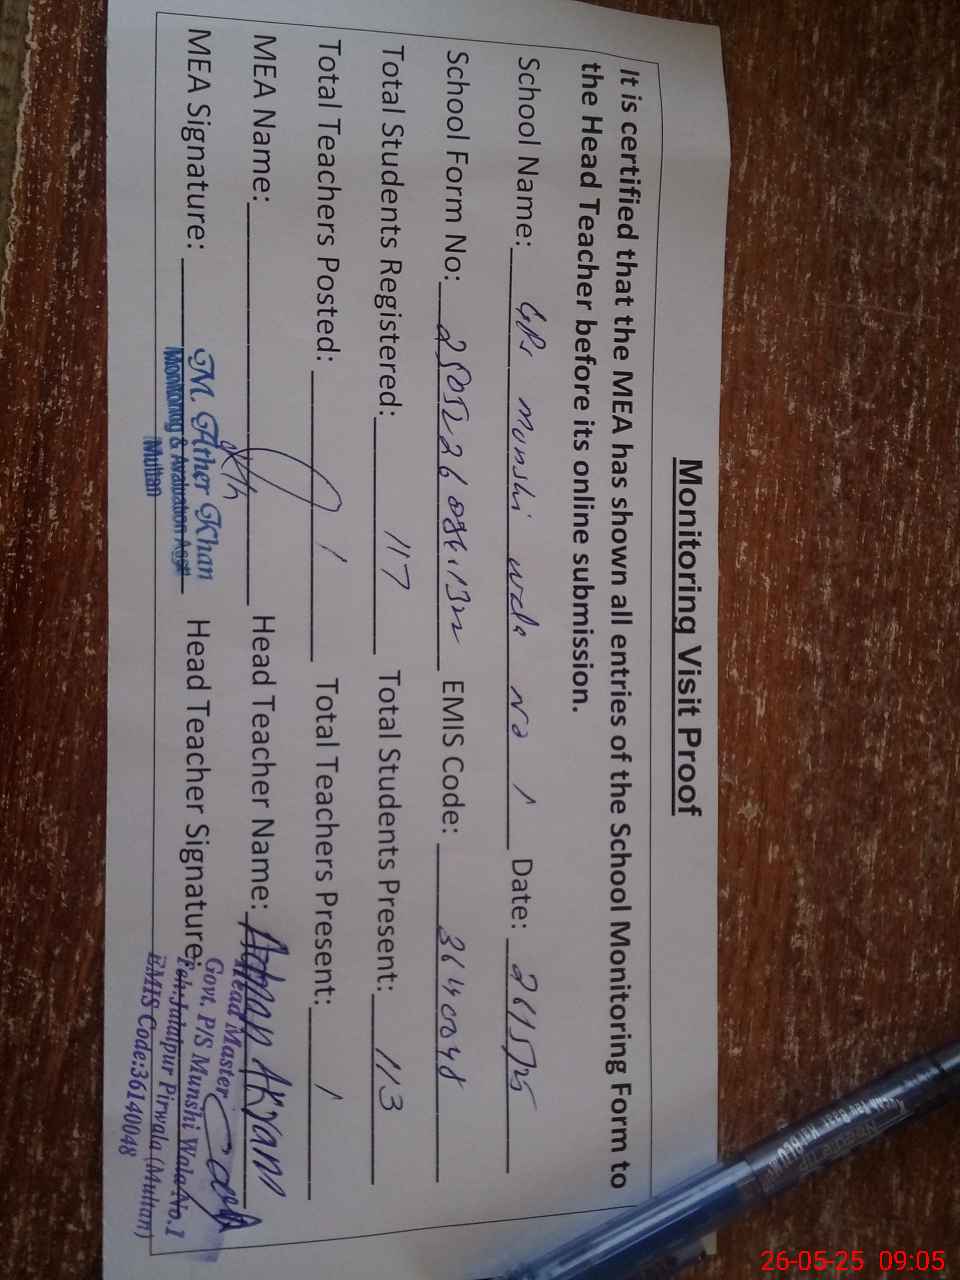 Monitoring Visit Proof
It is certified that the MEA has shown all entries of the School Monitoring Form to
the Head Teacher before its online submission.
School Name: GPS Munshi wala No 1 Date: 26/5/25
School Form No: EMIS Code: 36140048
Total Students Registered: 117 Total Students Present: 113
Total Teachers Posted: 1 Total Teachers Present: 1
MEA Name: Head Teacher Name: Adnan Akram
MEA Signature: M. Ather Khan Head Teacher Signature:
Monitoring & Avaluation Asstt
Multan
Head Master
Govt. P/S Munshi Wala No.1
Teh:Jalalpur Pirwala (Multan)
EMIS Code:36140048
26-05-25 09:05